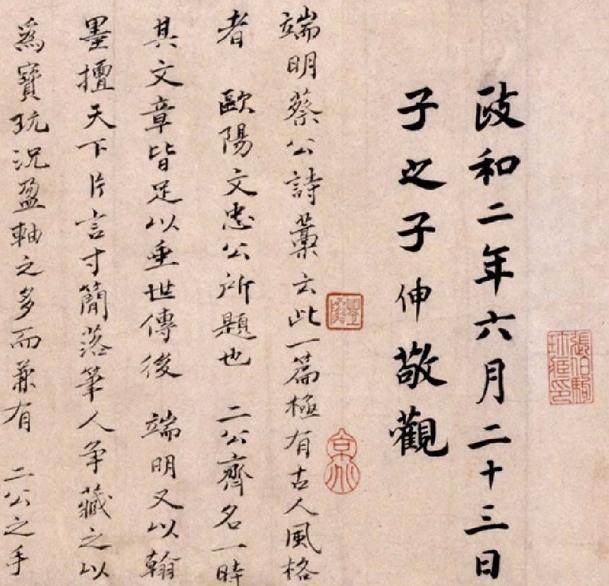 政和二年六月二十三日
子之子伸敬觀
端明蔡公詩藁云此一篇極有古人風格
者 歐陽文忠公所題也 二公齊名一時
其文章皆足以垂世傳後 端明又以翰
墨擅天下片言寸簡落筆人爭藏之以
爲寶玩況盈軸之多而兼有 二公之手